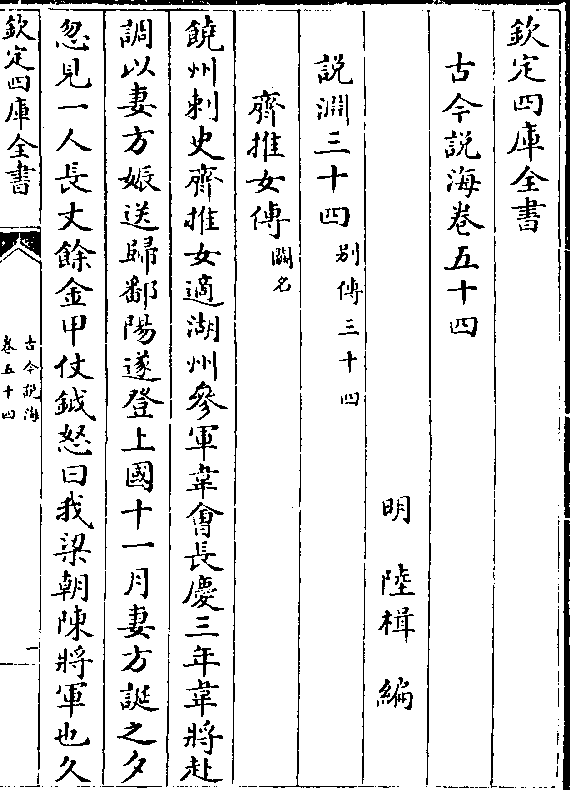 欽定四庫全書
古今說海卷五十四
明 陸楫 編
說淵三十四 别傳三十四
齊推女傳 闕名
饒州刺史齊推女適湖州參軍韋會長慶三年韋將赴
調以妻方娠送歸鄱陽遂登上國十一月妻方誕之夕
忽見一人長丈餘金甲仗鉞怒曰我梁朝陳將軍也久
欽定四庫全書
古今說海
卷五十四
一